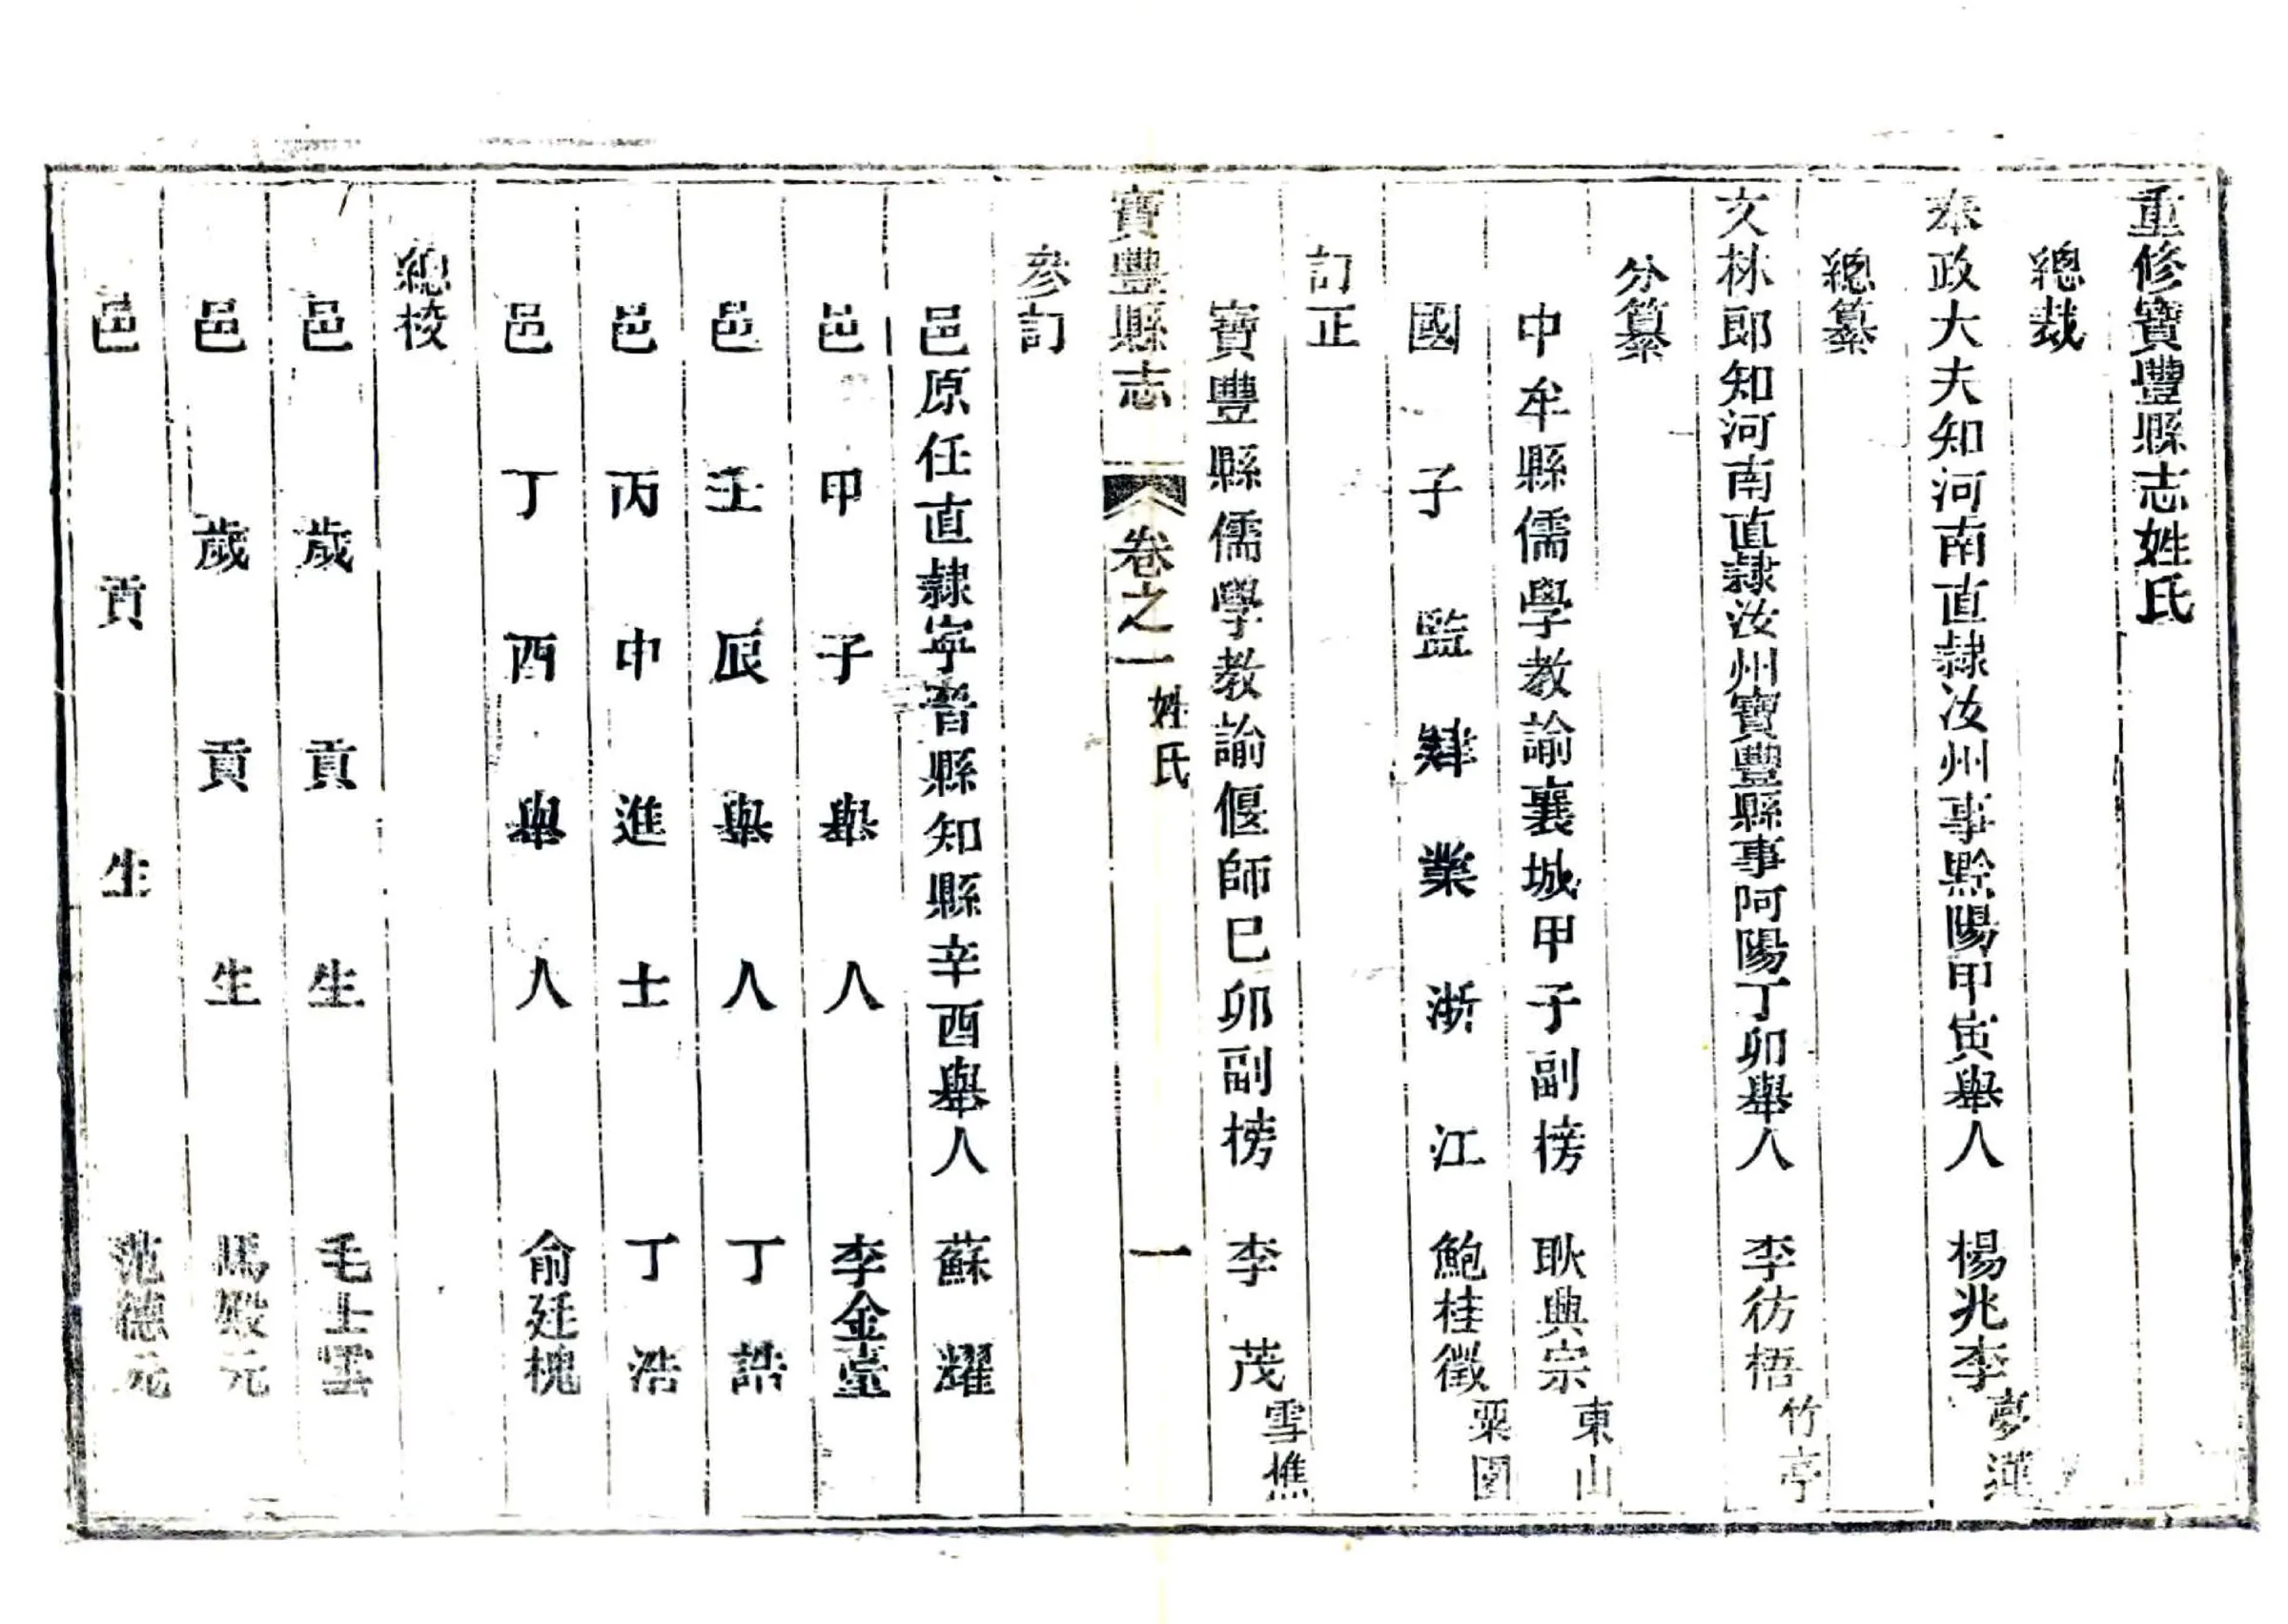 重修寶豐縣志姓氏
總裁
奉政大夫知河南直隸汝州事黔陽甲寅舉人 楊兆李 夢蓮
總纂
文林郎知河南直隸汝州寶豐縣事阿陽丁卯舉人 李彷梧 竹亭
分纂
中牟縣儒學教諭襄城甲子副榜 耿興宗 東山
國子監肄業浙江 鮑桂徵 粟園
訂正
寶豐縣儒學教諭偃師己卯副榜 李茂 雪樵
寶豐縣志 卷之一 姓氏 一
參訂
邑原任直隸寧晉縣知縣辛酉舉人 蘇耀
邑甲子舉人 李金臺
邑壬辰舉人 丁誥
邑丙申進士 丁浩
邑丁酉舉人 俞廷槐
總校
邑歲貢生 毛士雲
邑歲貢生 馬殿元
邑貢生 范德元